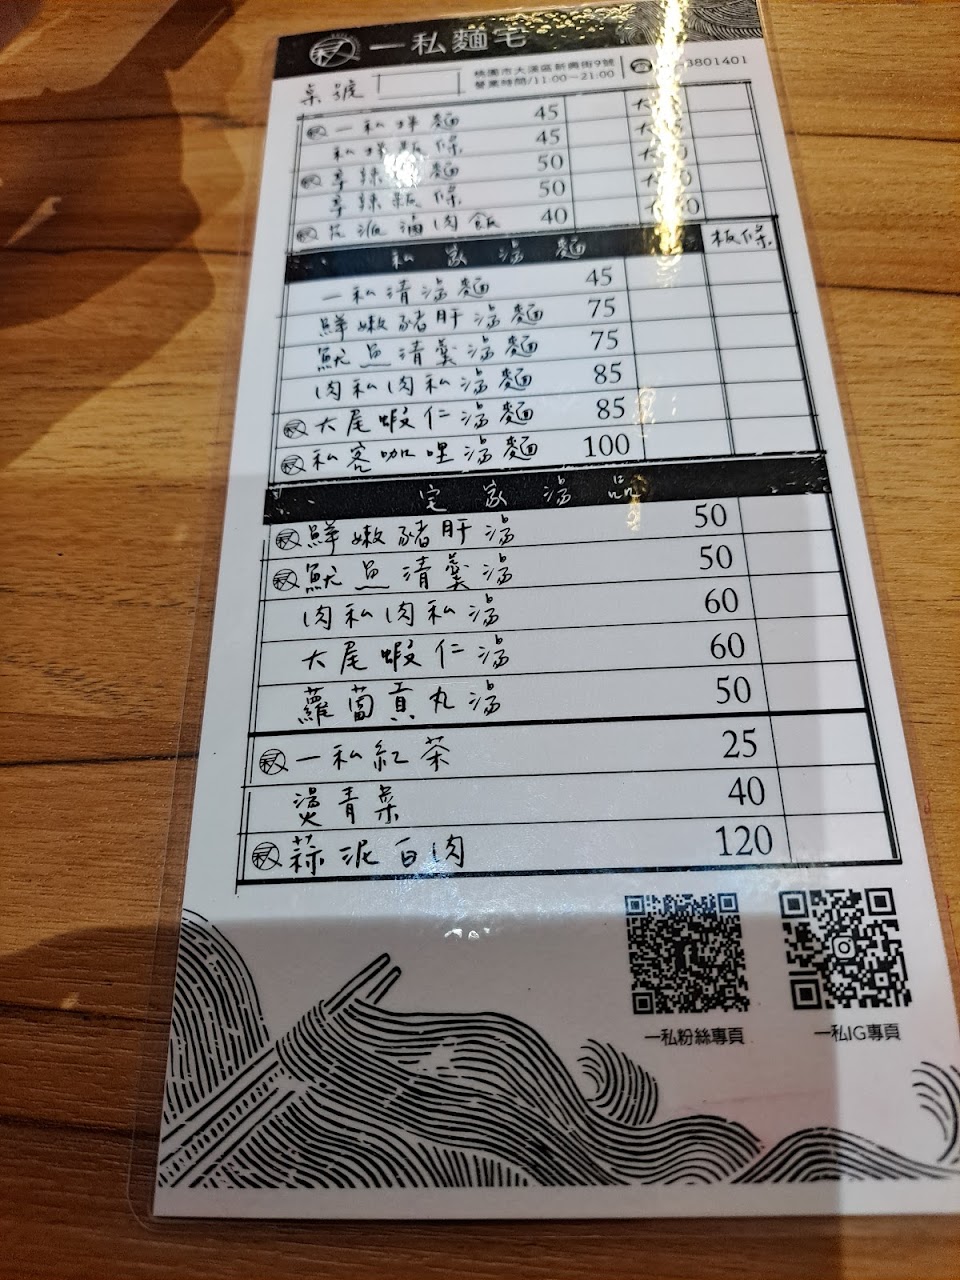 一私麵宅
桌號
桃園市大溪區新興街9號
營業時間/11:00~21:00
3801401
一私拌麵 45 大
私拌粄條 45 大
辛辣 麵 50 大
辛辣粄條 50 大
古派滷肉飯 40
私家湯麵 板條
一私清湯麵 45
鮮嫩豬肝湯麵 75
魷魚清羹湯麵 75
肉私肉私湯麵 85
大尾蝦仁湯麵 85
私客咖哩湯麵 100
宅家湯品
鮮嫩豬肝湯 50
魷魚清羹湯 50
肉私肉私湯 60
大尾蝦仁湯 60
蘿蔔貢丸湯 50
一私紅茶 25
燙青菜 40
蒜泥白肉 120
一私粉絲專頁
一私IG專頁